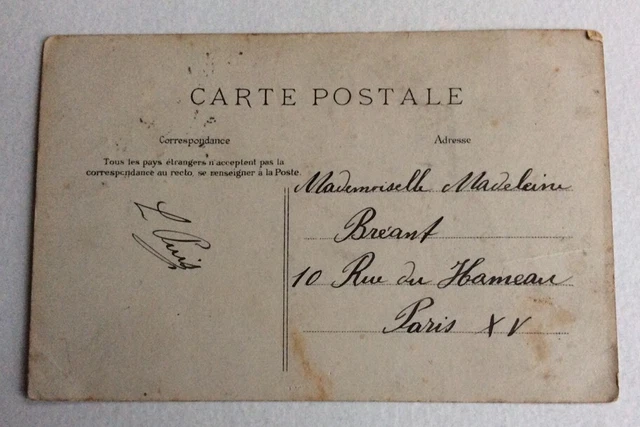 CARTE POSTALE
Correspondance
Tous les pays étrangers n'acceptent pas la
correspondance au recto, se renseigner à la Poste.
Adresse
Mademoiselle Madeleine
Bréant
10 Rue du Hameau
Paris XV
L